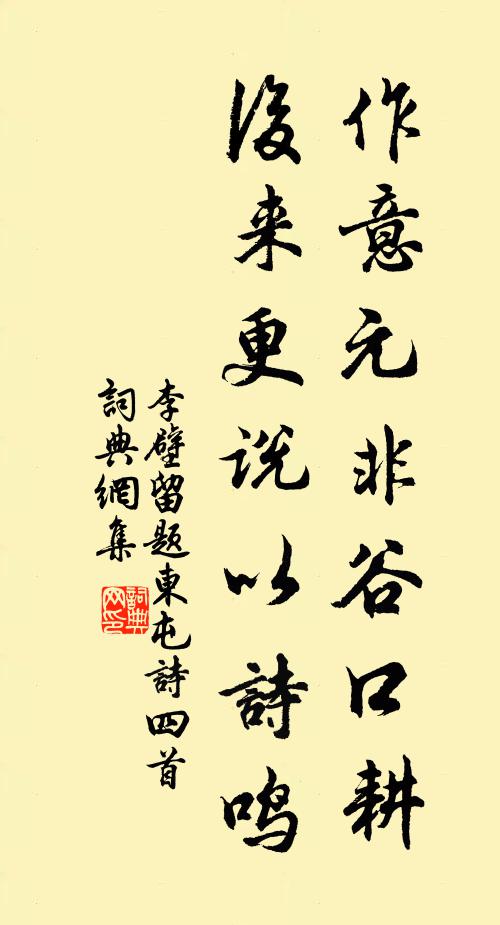 作意元非谷口耕
後来更説以詩鳴
李壁留題東屯詩四首
詞典網集
詞典网印